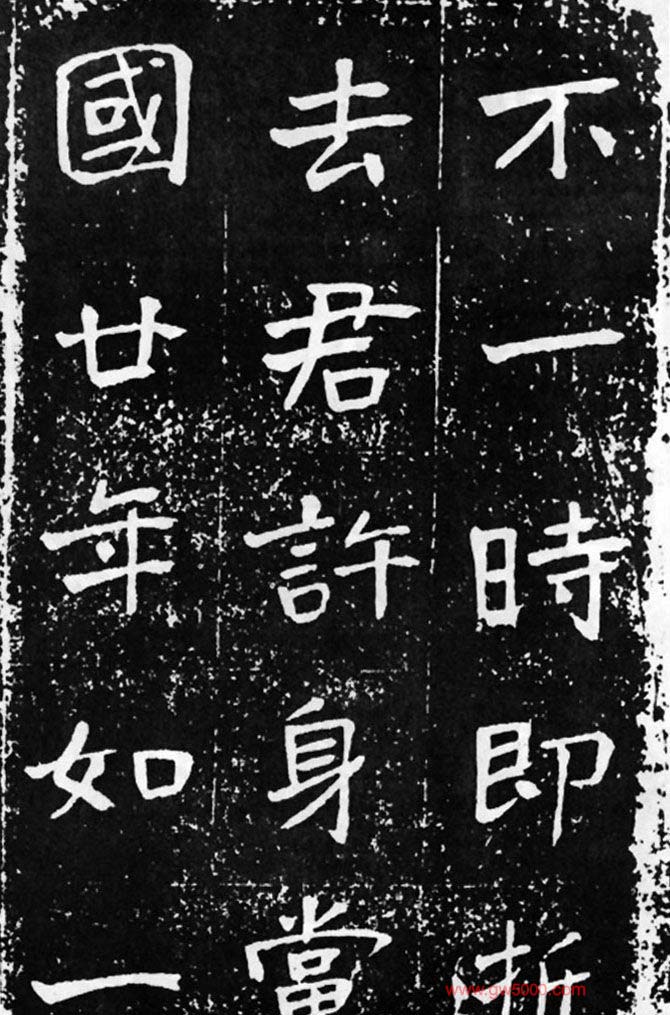 不一時即折
去君許身當
國廿年如一
www.gw5000.com